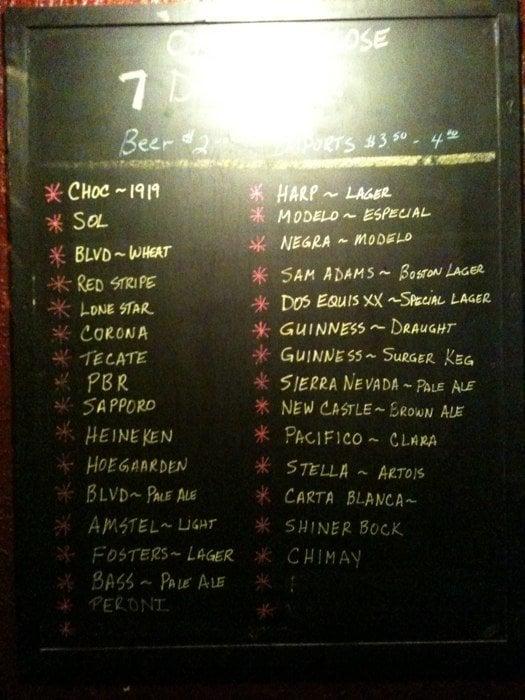 7
Beer $2 IMPORTS $3.50 - 4.00
* CHOC ~ 1919
* SOL
* BLVD ~ WHEAT
* RED STRIPE
* LONE STAR
* CORONA
* TECATE
* PBR
* SAPPORO
* HEINEKEN
* HOEGAARDEN
* BLVD ~ PALE ALE
* AMSTEL ~ LIGHT
* FOSTERS ~ LAGER
* BASS ~ PALE ALE
* PERONI
*
* HARP ~ LAGER
* MODELO ~ ESPECIAL
* NEGRA ~ MODELO
* SAM ADAMS ~ BOSTON LAGER
* DOS EQUIS XX ~ SPECIAL LAGER
* GUINNESS ~ DRAUGHT
* GUINNESS ~ SURGER KEG
* SIERRA NEVADA ~ PALE ALE
* NEW CASTLE ~ BROWN ALE
* PACIFICO ~ CLARA
* STELLA ~ ARTOIS
* CARTA BLANCA ~
* SHINER BOCK
* CHIMAY
*
*